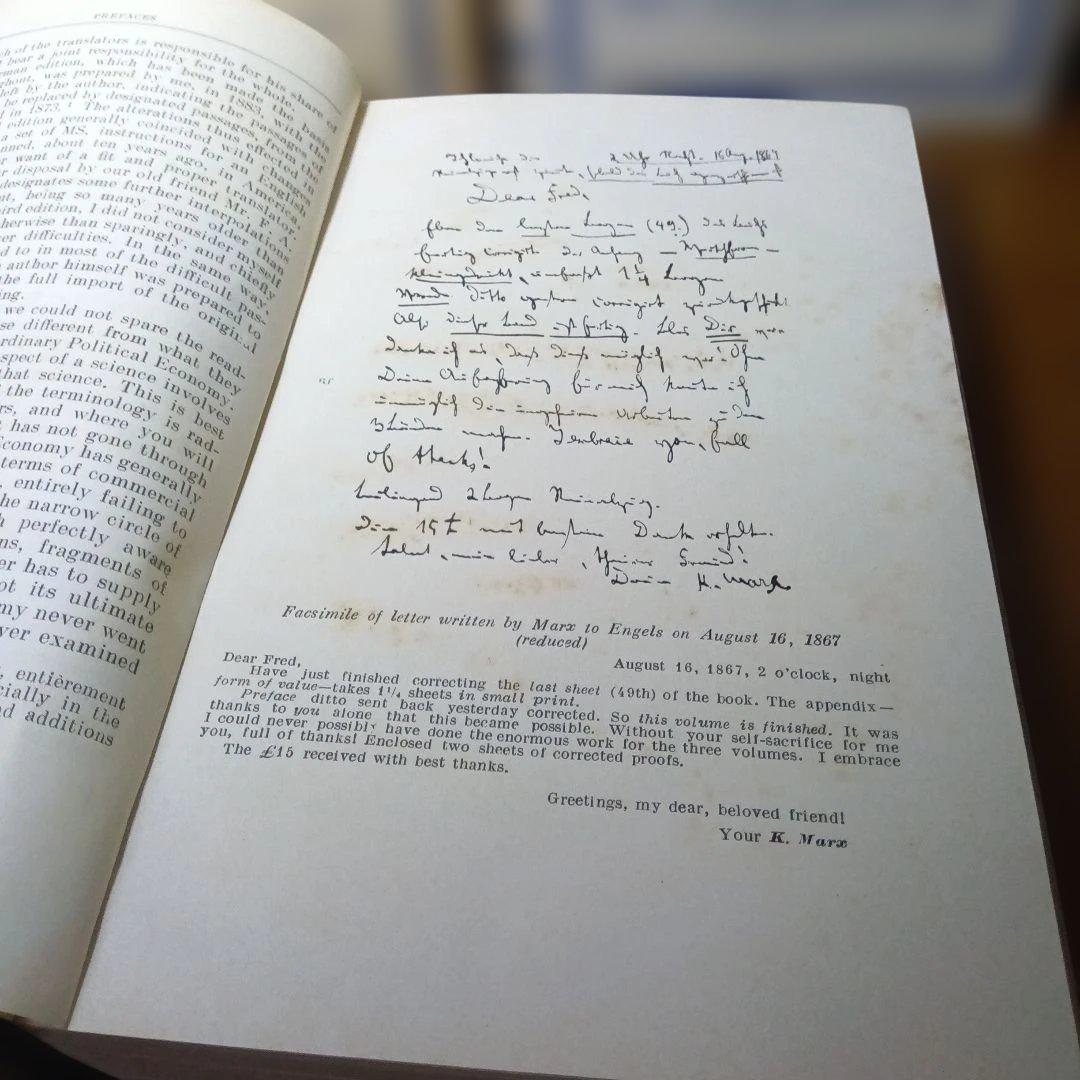 PREFACES
ch of the translators is responsible for his share of
bear a joint responsibility for the whole.
rman edition, which has been made the basis
ghout, was prepared by me, in 1883, with the
left by the author, indicating the passages of
be replaced by designated passages, from the
d in 1873.¹ The alterations thus effected in
edition generally coincided with the changes
a set of MS. instructions for an English
nned, about ten years ago, in America,
r want of a fit and proper translator,
r disposal by our old friend Mr. F. A.
designates some further interpolations
ut, being so many years older than
ird edition, I did not consider myself
herwise than sparingly, and chiefly
er difficulties. In the same way
d to in most of the difficult pas-
author himself was prepared to
the full import of the original
ing.
we could not spare the read-
se different from what they
rdinary Political Economy.
spect of a science involves
that science. This is best
the terminology is rad-
rs, and where you will
has not gone through
Economy has generally
terms of commercial
, entirely failing to
he narrow circle of
h perfectly aware
ns, fragments of
er has to supply
ot its ultimate
my never went
ver examined
, entièrement
cially in the
nd additions
2 Uhr Nacht. 16 Aug. 1867
Dear Fred,
(49.)
fertig corrigirt. Der Anhang — Werthform —
kleingedruckt, umfasst 1 1/4 Bogen
ditto gestern corrigirt zurückgeschickt.
Also dieser Band ist fertig. Dir
I embrace you, full
of thanks!
2 Bogen
Die 15 £ mit bestem Dank erhalten.
Salut, mein lieber, theurer Freund!
Dein K. Marx
Facsimile of letter written by Marx to Engels on August 16, 1867
(reduced)
August 16, 1867, 2 o'clock, night
Dear Fred,
Have just finished correcting the last sheet (49th) of the book. The appendix—
form of value—takes 1¼ sheets in small print.
Preface ditto sent back yesterday corrected. So this volume is finished. It was
thanks to you alone that this became possible. Without your self-sacrifice for me
I could never possibly have done the enormous work for the three volumes. I embrace
you, full of thanks! Enclosed two sheets of corrected proofs.
The £15 received with best thanks.
Greetings, my dear, beloved friend!
Your K. Marx